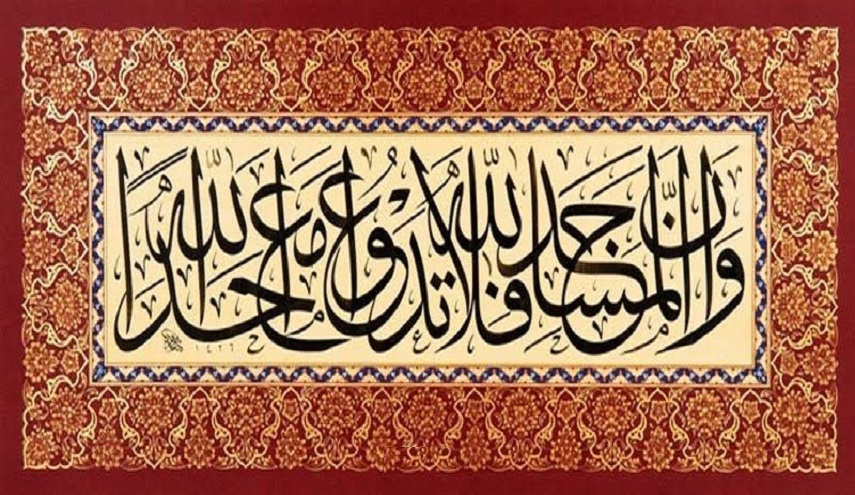 وَأَنَّ الْمَسَاجِدَ لِلَّهِ فَلَا تَدْعُوا مَعَ اللَّهِ أَحَدًا
١٤٢٦